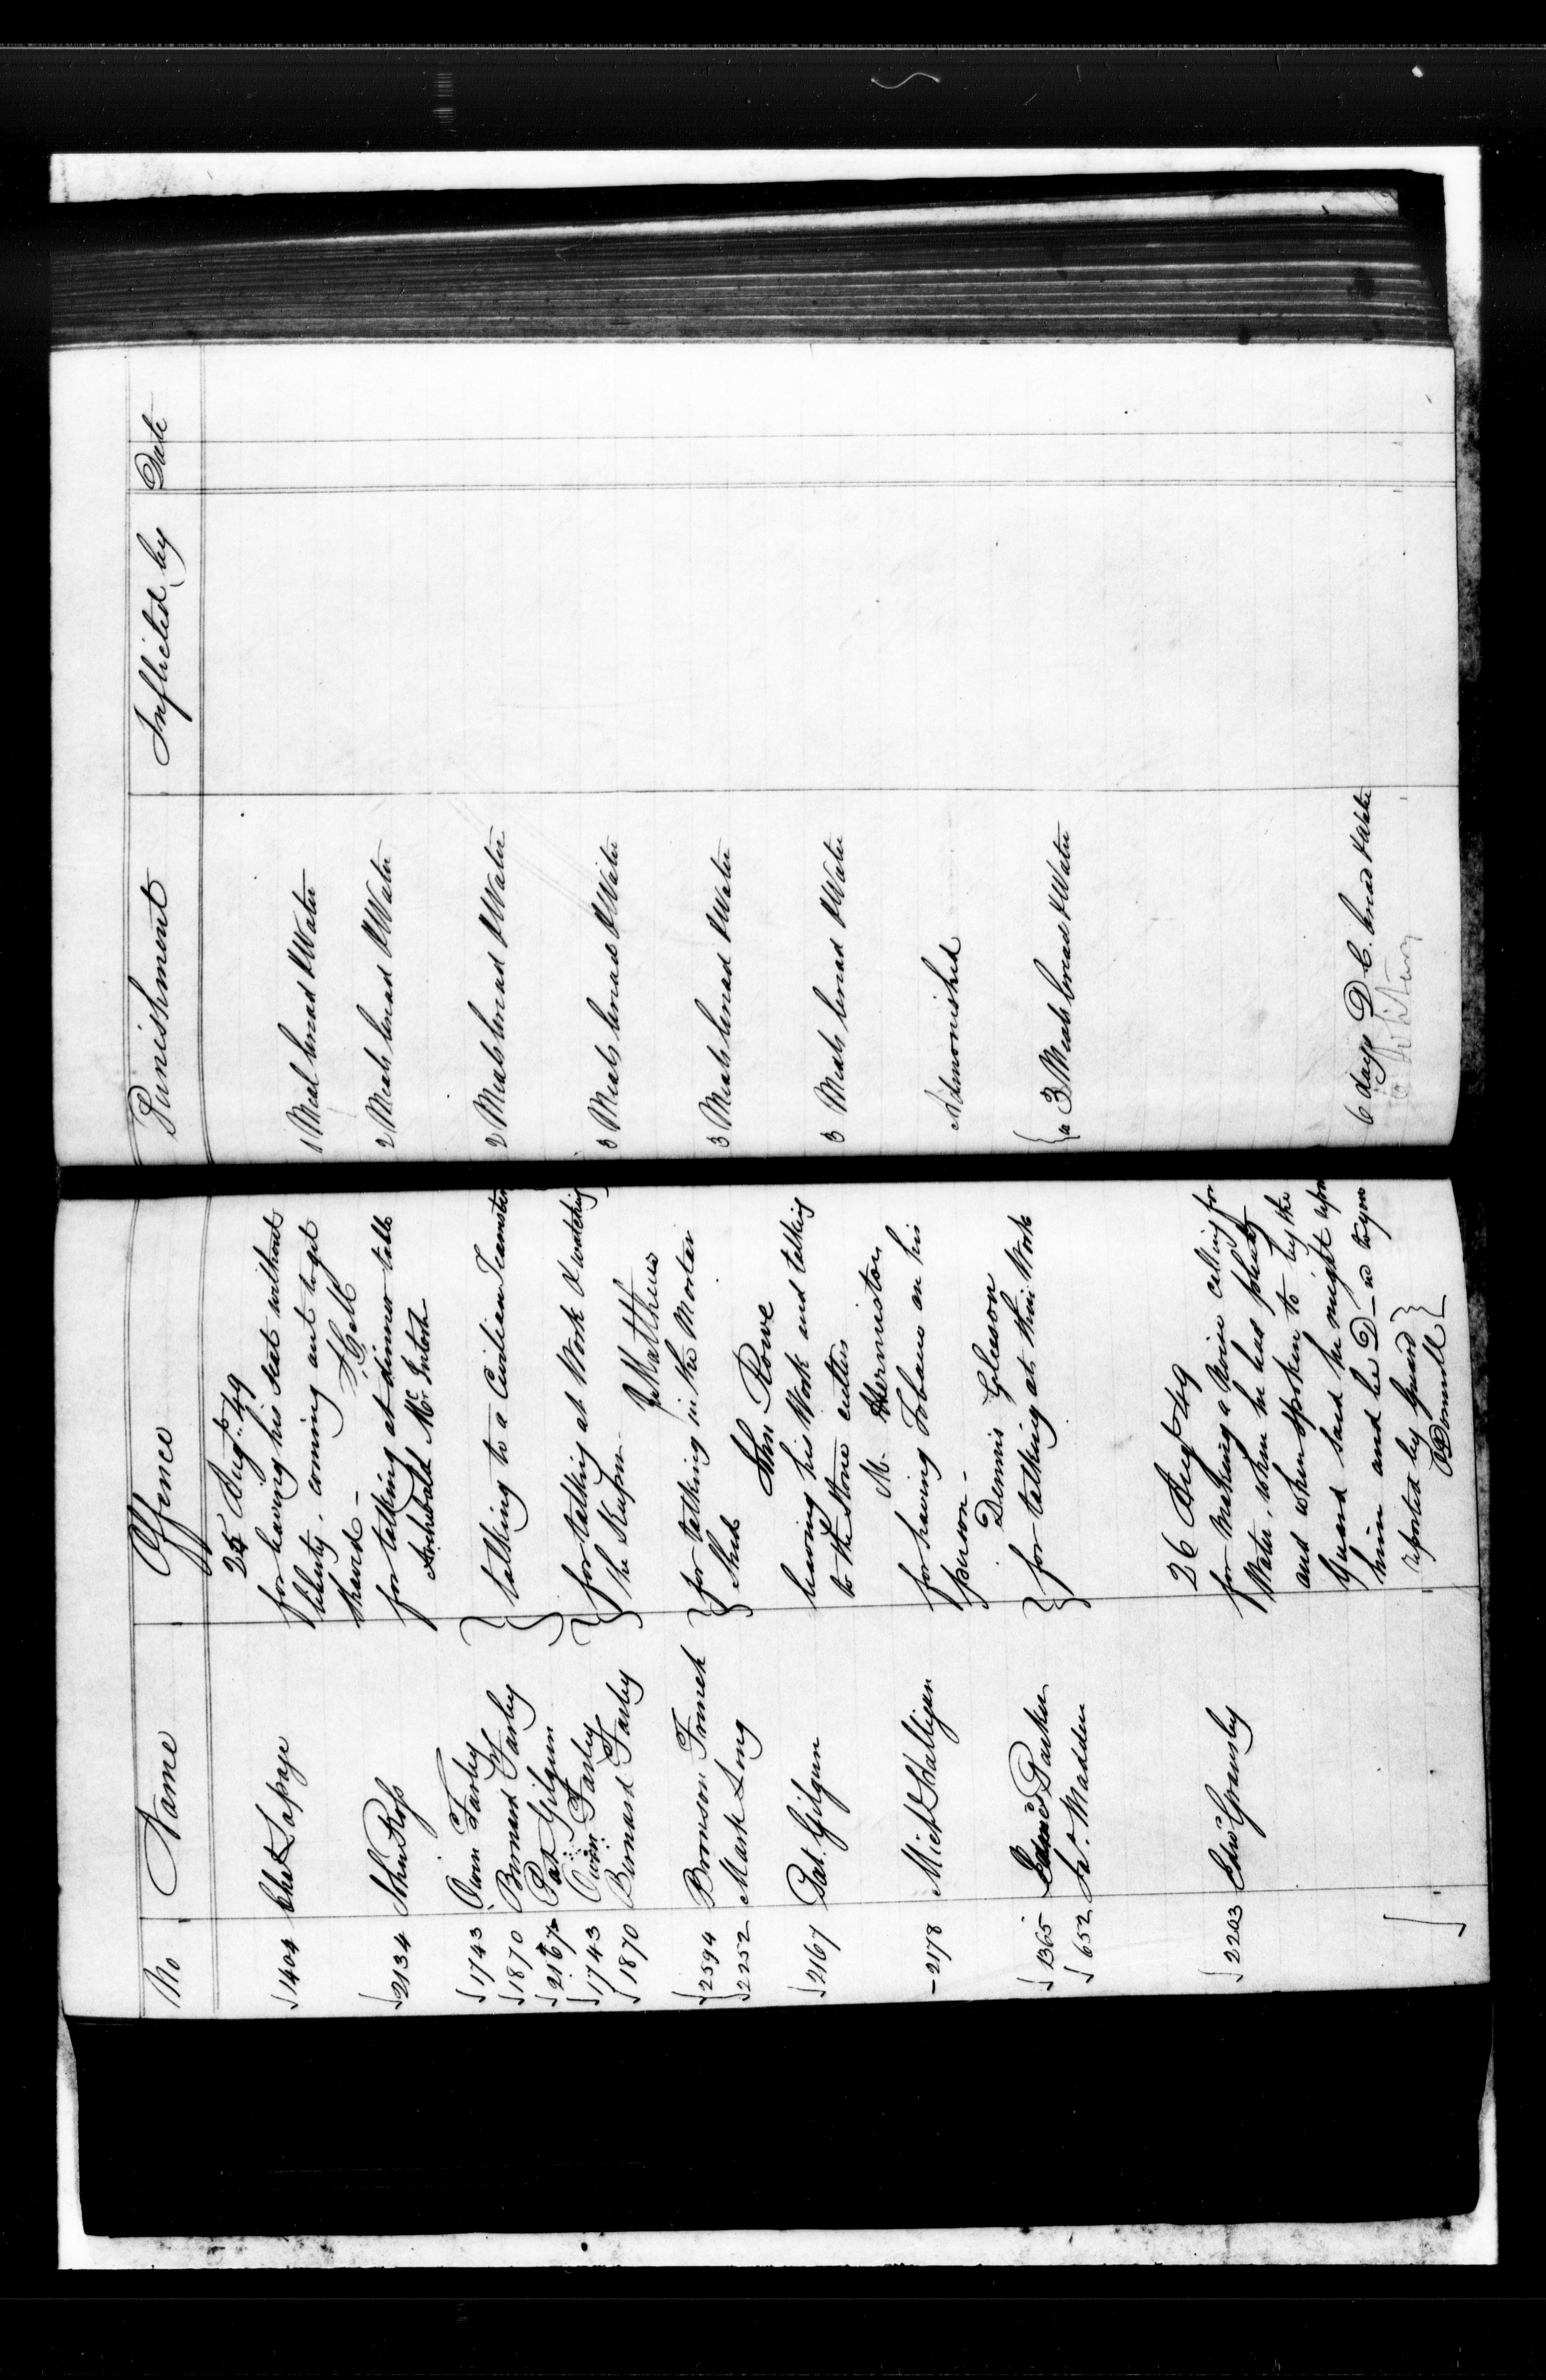 No Name Offence Punishment Inflicted by Date
25 Augt. 49
1404 Chs Lapage for leaving his seat without 1 Meal bread & Water
liberty, coming out to get
shaved -
2134 John Ross for talking at dinner table 2 Meals bread & Water
Archibald McIntosh
1743 Owen Farley
1870 Bernard Farley talking to a Civilian Teamster 2 Meals bread & Water
2167 Pat Gilgun
1743 Owen Farley for talking at Work & watching
1870 Bernard Farley the 3 Meals bread & Water
J Matthews
2594 Bronson French for talking in the Mortar 3 Meals bread & Water
2252 Mark Long Shed
John Rowe
2167 Pat. Gilgun leaving his Work and talking 3 Meals bread & Water
to the Stone cutters
M. Hermiston
2178 Michl Halligan for having Tobacco on his Admonished
person -
Dennis Gleeson
1365 Parker for talking at their Work 3 Meals bread & Water
652 Jas. Madden
26 Augt 49
2203 Edwd Gramsby for Making a Noise calling for
Water, when he had plenty
and when spoken to by the
Guard said he might
him and be D—d to him 6 days D C. bread & Water
reported by Guard
ODonnell